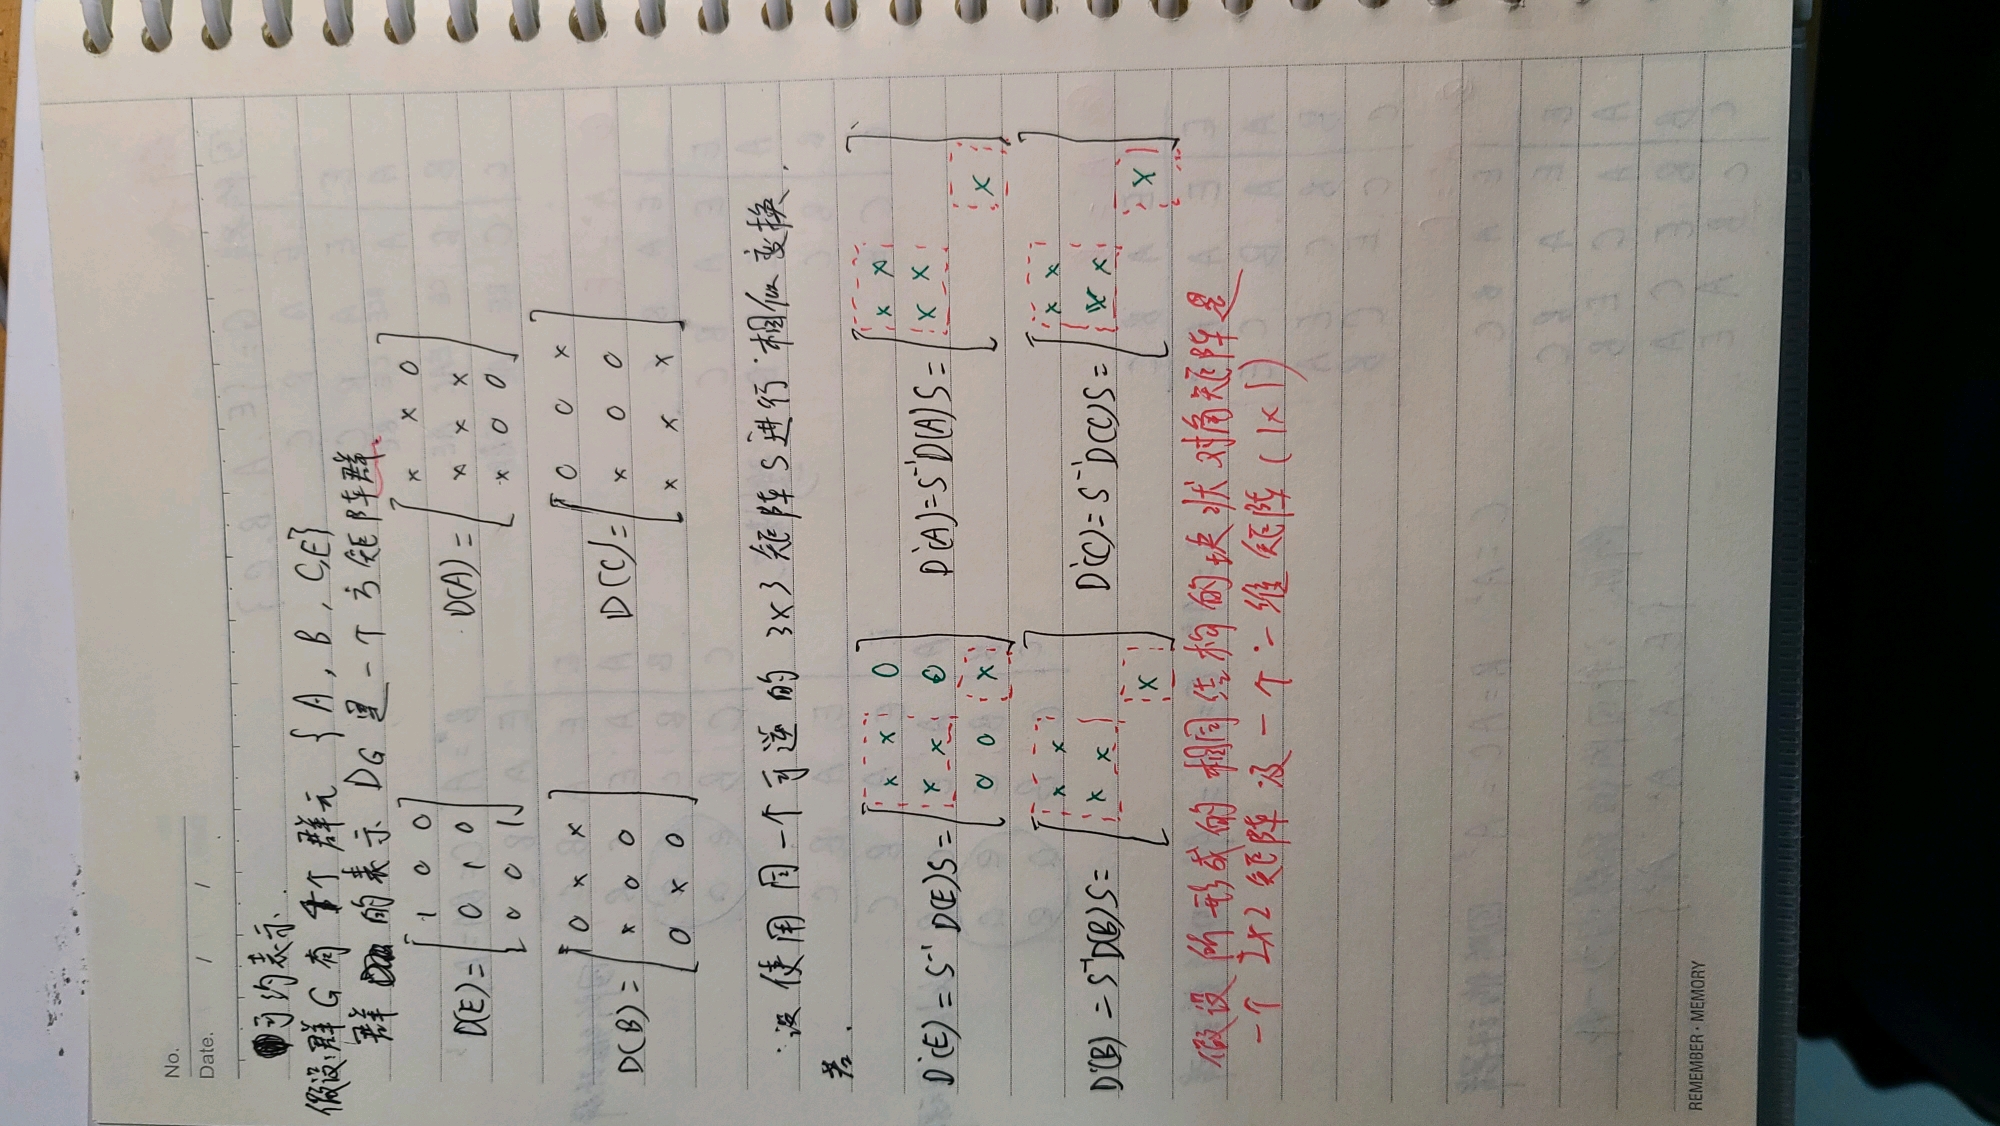 No.
Date. / /
可约表示.
假设:群G有4个群元 {A, B, C, E}
群 的表示 DG是一个方矩阵群.
D(E) = [1 0 0; 0 1 0; 0 0 1] D(A) = [x x 0; x x x; x 0 0]
D(B) = [0 x x; x 0 0; 0 x 0] D(C) = [0 0 x; x 0 0; x x x]
设使用同一个可逆的 3×3 矩阵 S 进行相似变换.
若.
D'(E) = S⁻¹ D(E)S = [x x 0; x x 0; 0 0 x] D'(A) = S⁻¹D(A)S = [x x; x x; x]
D'(B) = S⁻¹D(B)S = [x x; x x; x] D'(C) = S⁻¹D(C)S = [x x; x x; x]
假设所形成的相同结构的块状对角矩阵是
一个 2×2 矩阵及一个一维矩阵 (1×1)
REMEMBER · MEMORY